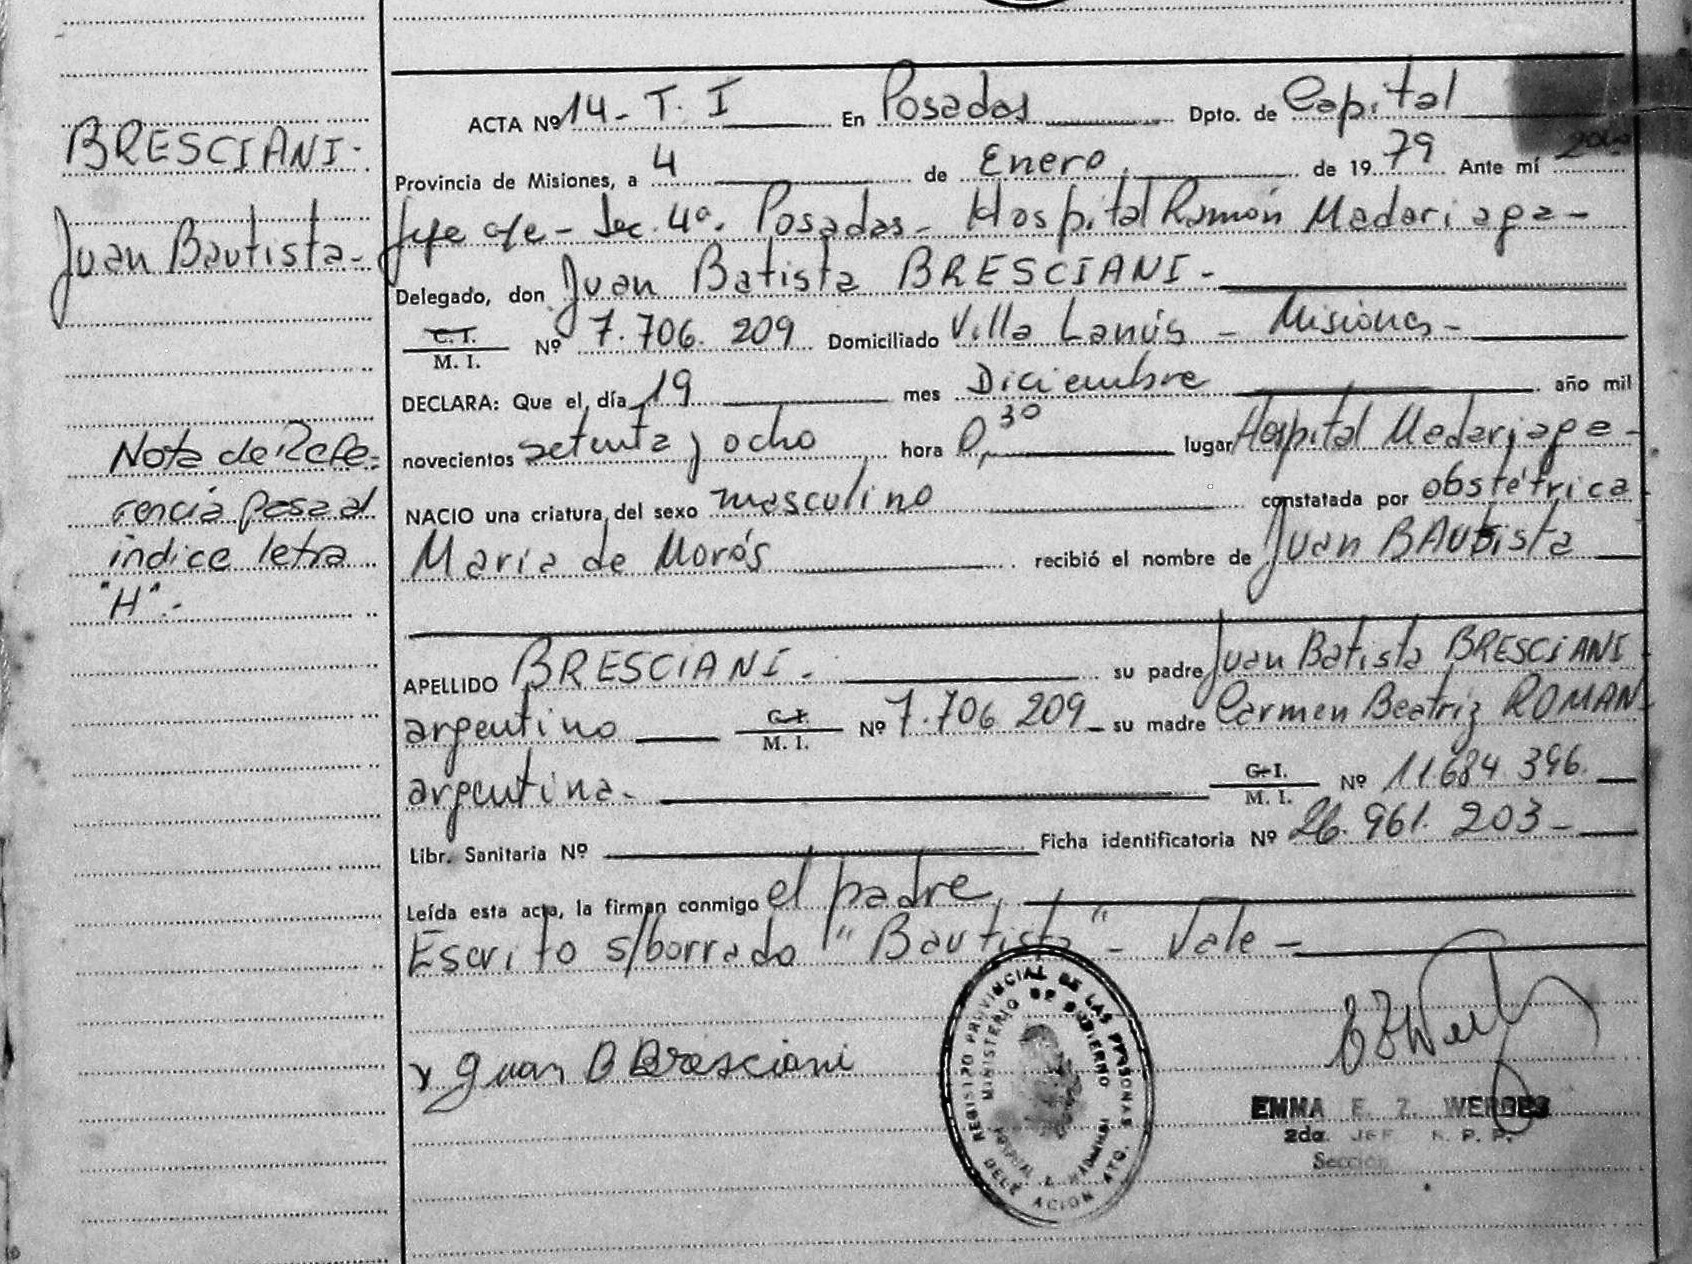 BRESCIANI-
Juan Bautista-
Nota de Refe-
rencia pasa al
indice letra
"H".-
ACTA Nº 14- T. I En Posadas Dpto. de Capital
Provincia de Misiones, a 4 de Enero, de 19 79 Ante mí 2da
Jefe a/c - Sec. 4ª. Posadas- Hospital Ramón Madariaga-
Delegado, don Juan Batista BRESCIANI-
C. I.
M. I. Nº 7.706.209 Domiciliado Villa Lanús - Misiones-
DECLARA: Que el día 19 mes Diciembre año mil
novecientos setenta y ocho hora 0,30 lugar Hospital Madariaga-
NACIO una criatura del sexo masculino constatada por obstétrica
María de Morás recibió el nombre de Juan BAutista
APELLIDO BRESCIANI- su padre Juan Batista BRESCIANI
argentino C. I. M. I. Nº 7.706 209 su madre Carmen Beatriz ROMAN-
argentina- C. I. M. I. Nº 11.684 396.
Libr. Sanitaria Nº Ficha identificatoria Nº 26.961.203-
Leída esta acta, la firman conmigo el padre,
Escrito s/borrado "Bautista"- Vale-
x Juan B Bresciani
REGISTRO PROVINCIAL DE LAS PERSONAS
MINISTERIO DE GOBIERNO
DELEGACION 4TQ.
EMMA E. Z.
2da. JEF R. P. P.
Sección